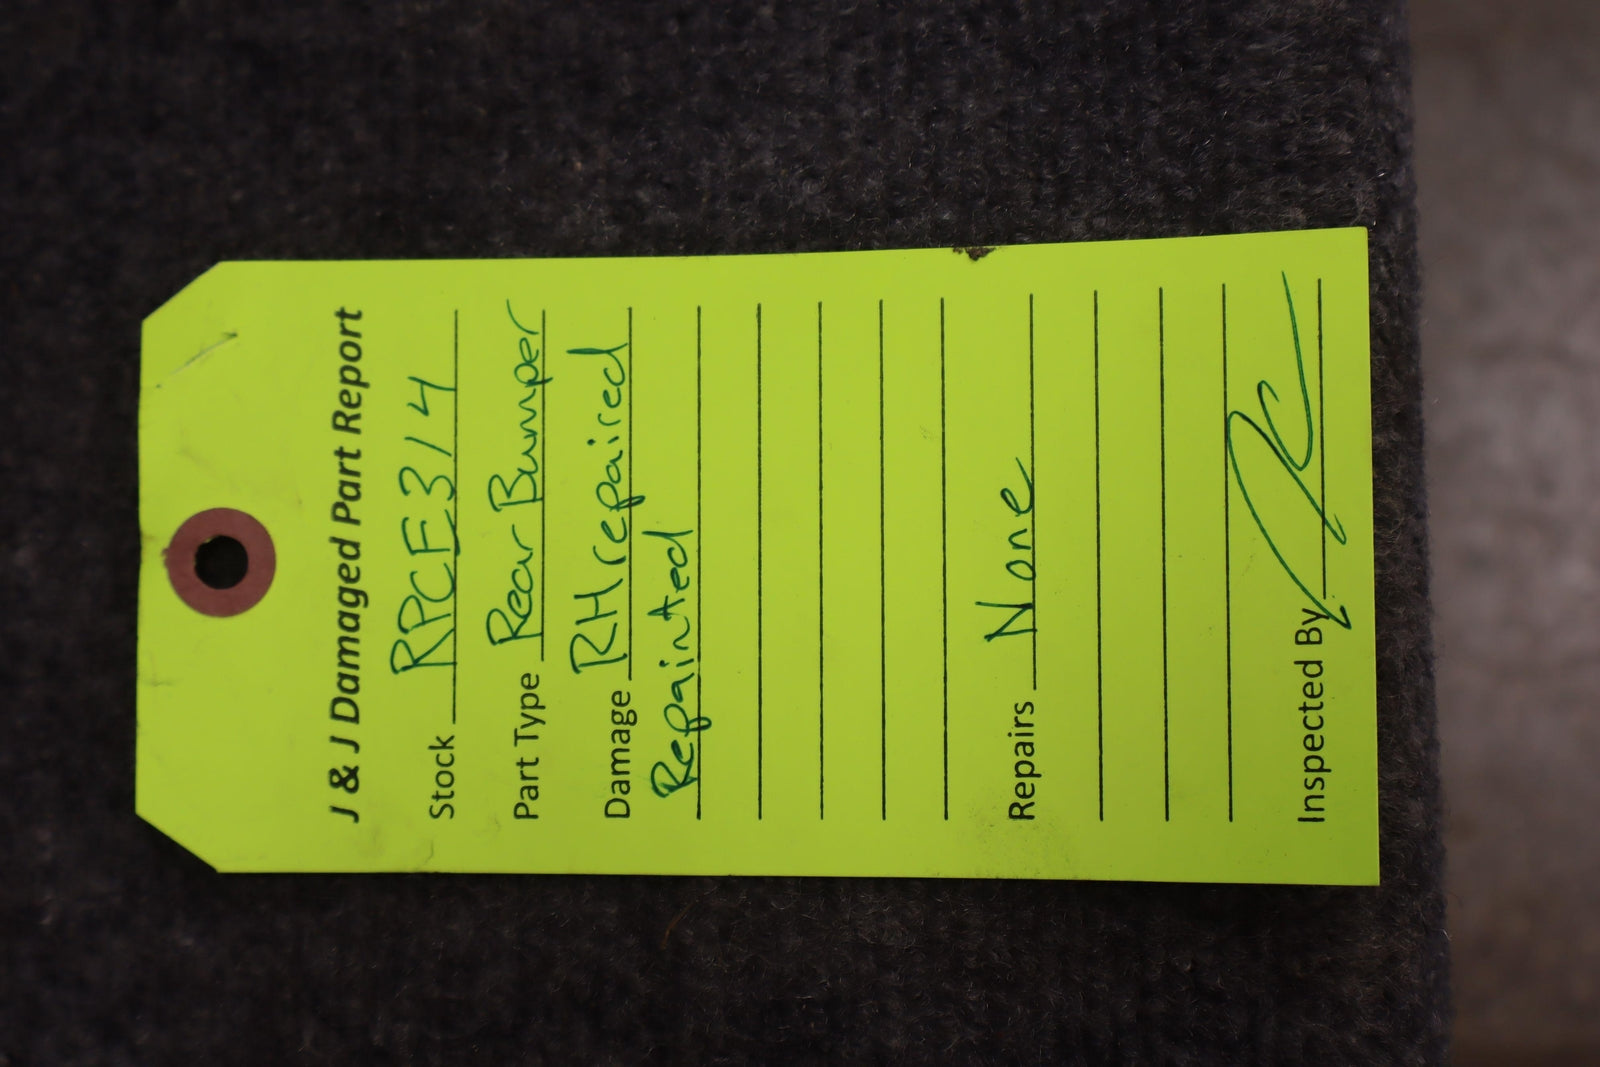 J & J Damaged Part Report
Stock RPCE314
Part Type Rear Bumper
Damage RH repaired
Repainted
Repairs None
Inspected By